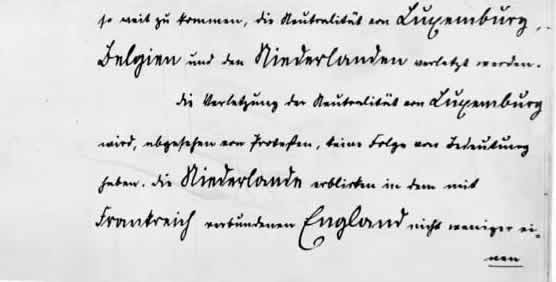 so weit zu kommen, die Neutralität von Luxemburg,
Belgien und den Niederlanden verletzt werden.
Die Verletzung der Neutralität von Luxemburg
wird, abgesehen von Protesten, keine Folge von Bedeutung
haben. Die Niederlande erblicken in dem mit
Frankreich verbundenen England nicht weniger ei-
nen